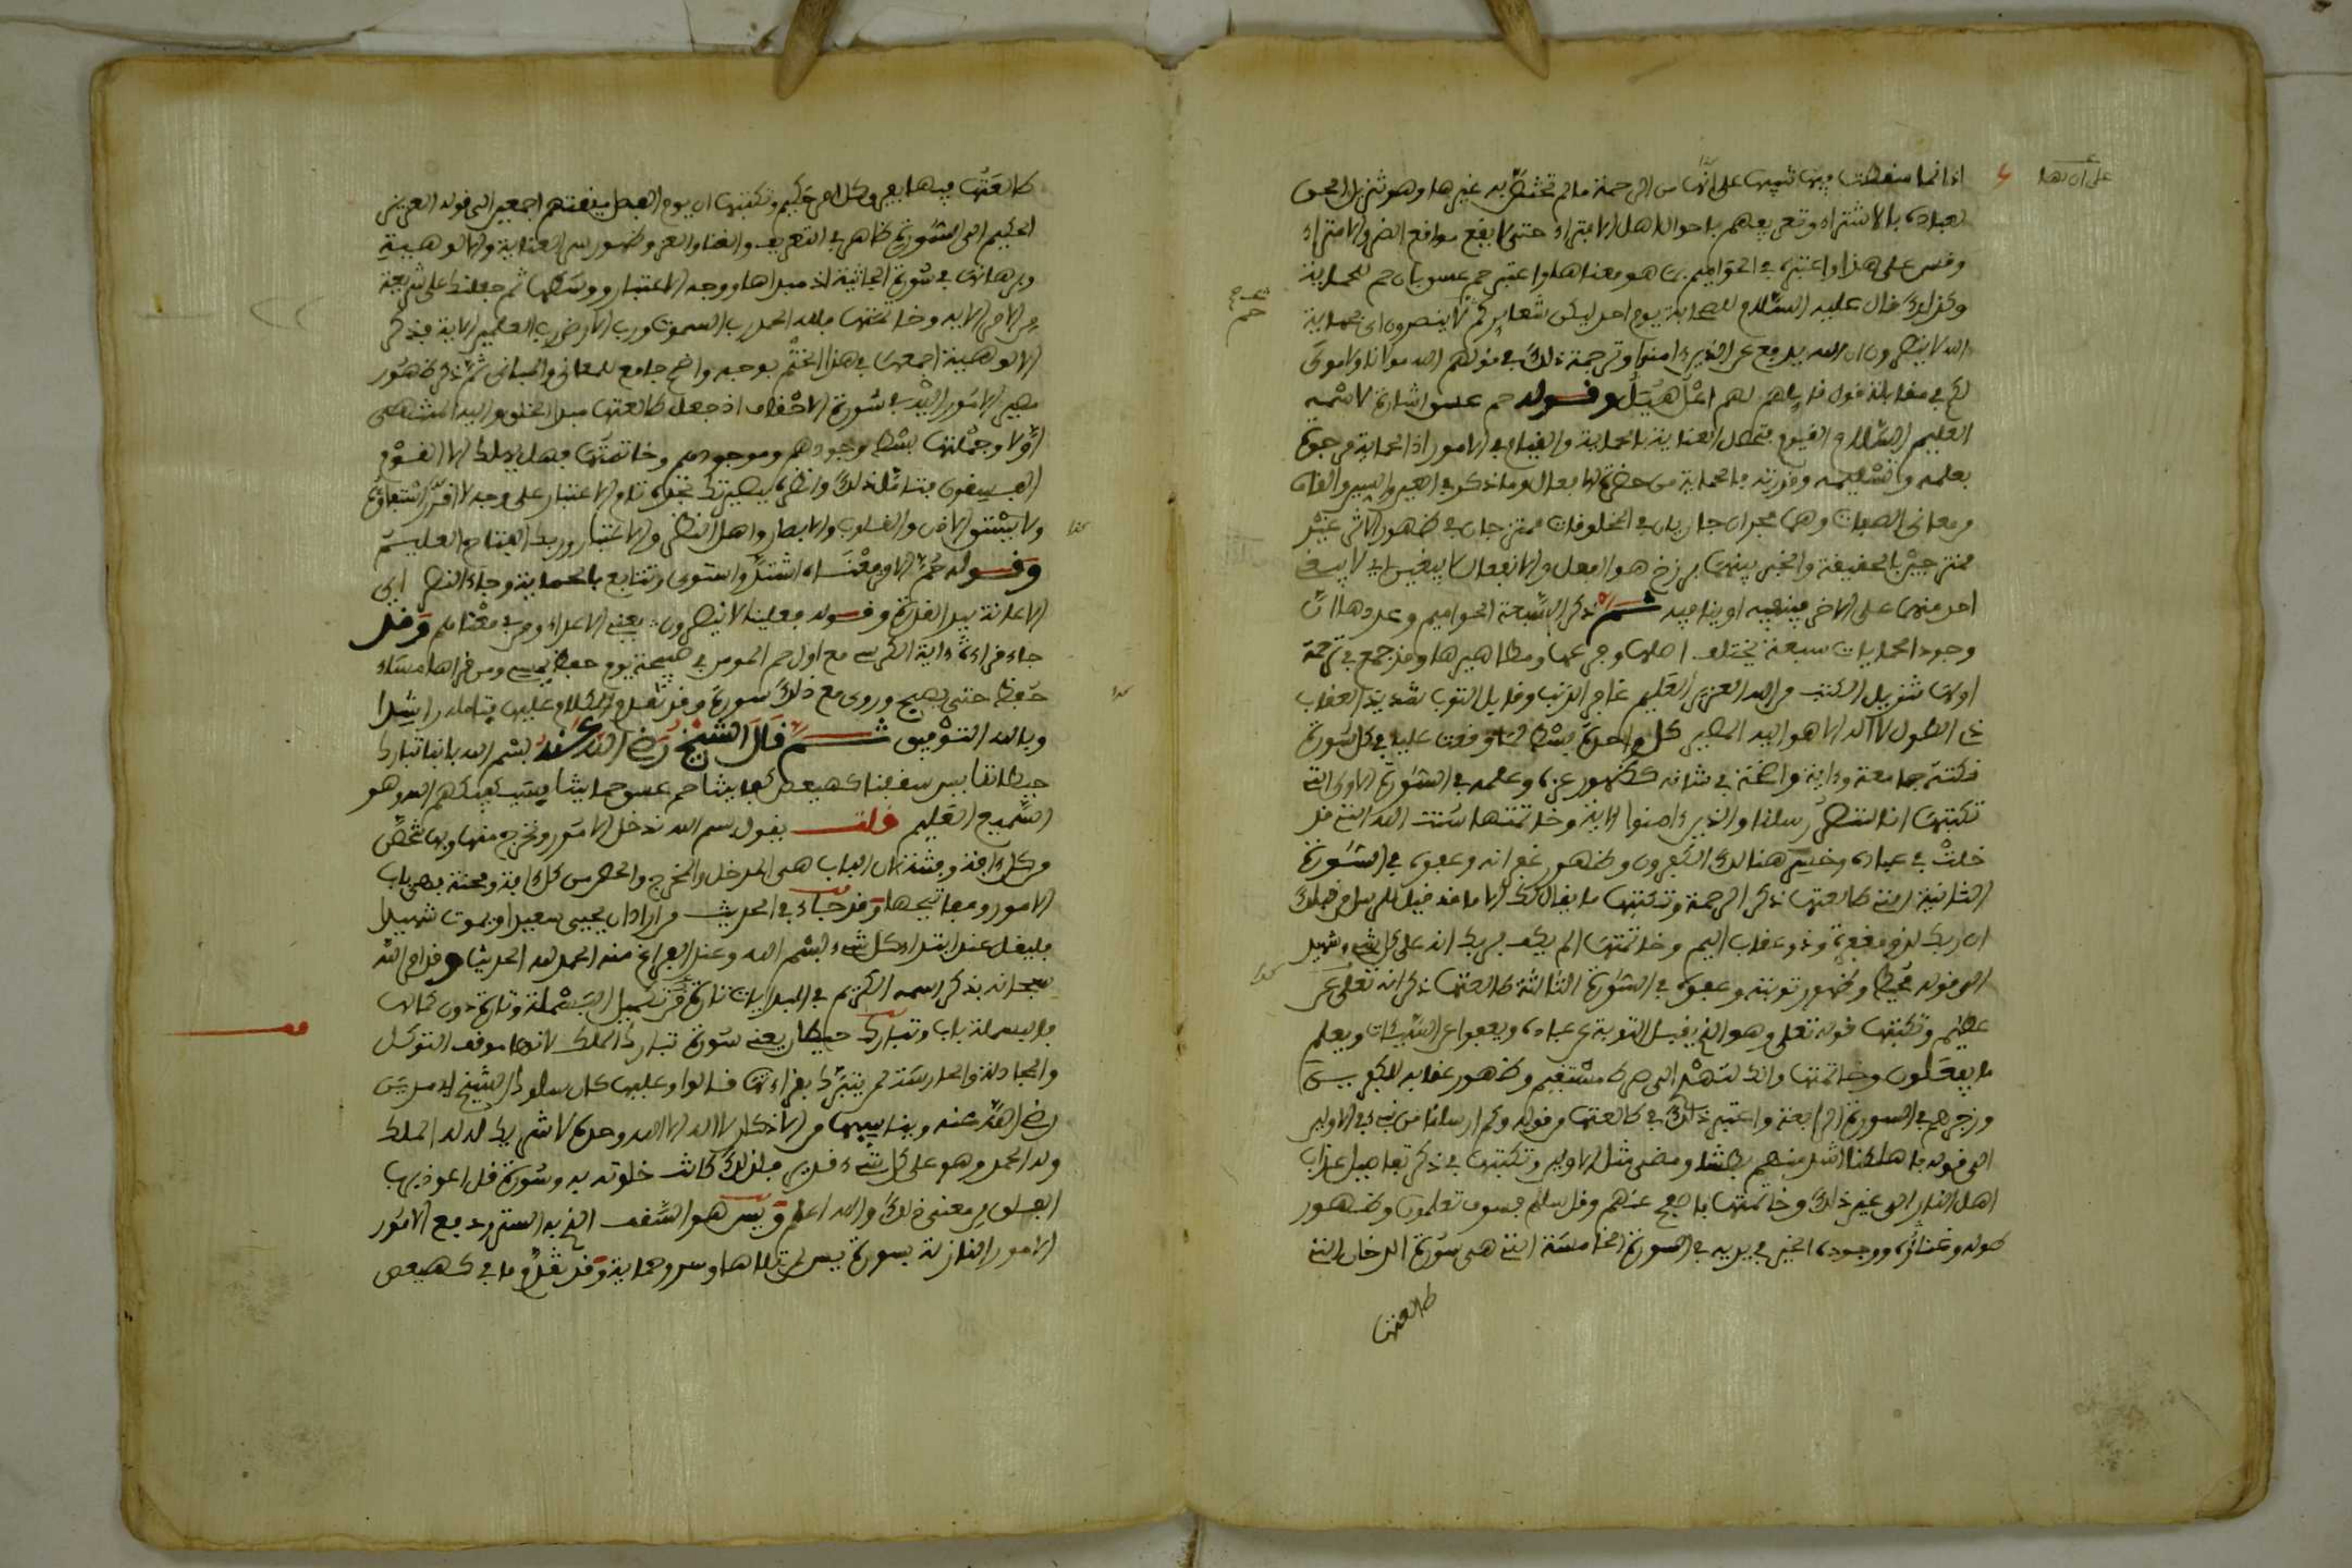 على أن لها
اذ انما سقطت بينها تنبيها على انها من الرحمة ما لم تختص به غيرها وهو تنزل الحق
لعباده بالاشتراء وتعريفهم باحوال اهل الامتراء حتى لا يقع مواقع الضر والامتراء
وقس على هذا واعتبره في الحواميم بما هو معناها واعتبر حم عسق بان حم للحماية
وكذلك قال عليه السلام للصحابة يوم احد ليكن شعاركم حم لا ينصرون اي بحماية
الله لا ينصرون ان الله يدفع عن الذين ءامنوا وترجمة ذلك في قولهم الله مولانا ولا مولى
لكم في مقابلة قول قايلهم لهم اعل هبل وقوله حم عسق اشارة لاسمه
العليم السلام القيوم
بعلمه وتسليمه وقدرته
ومعاني الصفات وهما بحران جاريان في المخلوقات ممتزجان في ظهور الاثر غير
ممتزجين بالحقيقة والخبر بينهما برزخ هو الفعل والانفعال لا يبغيان اي لا يبغي
احد منهما على الاخر فينفيه او ينافيه ثم ذكر السبعة الحواميم وعددها لان
وجود الحمايات سبعة يختلف اصلها وفرعها ومظاهرها وقد جمع في ترجمة
اولها تنزيل الكتب من الله العزيز العليم غافر الذنب وقابل التوب شديد العقاب
ذي الطول لا اله الا هو اليه المصير كل واحدة
نكتة جامعة وءاية واضحة في شانه كظهور عزه وعلمه في السورة الاولى التي
نكتتها انا لننصر رسلنا والذين ءامنوا الاية وخاتمتها سنت الله التي قد
خلت في عباده وخسر هنالك الكفرون وظهور غفرانه وعفوه في السورة
الثانية التي طالعتها ذكر الرحمة ونكتتها ما يقال لك الا ما قد قيل للرسل من قبلك
ان ربك لذو مغفرة وذو عقاب اليم وخاتمتها اولم يكف بربك انه على كل شيء شهيد
الى قوله محيط وظهور توبته وعفوه في السورة الثالثة طالعتها ذكر انه تعلى
عظيم ونكتتها قوله تعلى وهو الذي يقبل التوبة عن عباده ويعفوا عن السيئات ويعلم
ما يفعلون وخاتمتها وانك لتهدي الى صراط مستقيم وظهور عقابه للكفرين
وزجرهم في السورة الرابعة واعتبر ذلك في طالعتها من قوله وكم ارسلنا من نبيء في الاولين
الى قوله فاهلكنا اشد منهم بطشا ومضى مثل الاولين ونكتتها في ذكر تفاصيل عذاب
اهل النار الى غير ذلك وخاتمتها فاصفح عنهم وقل سلم فسوف تعلمون وظهور
طوله وغنائه ووجوده الخير في يديه في السورة الخامسة التي هي سورة الدخان التي
طالعتها
حم
كذا
طالعتها فيها يفرق كل امر حكيم ونكتتها ان يوم الفصل ميقتهم اجمعين الى قوله العزيز
الحكيم الى السورة ظاهر في التعريف والغنا والعز وظهور سر العناية والالوهية
وبرهانها في سورة الجاثية اذ مبداها ووجه الاعتبار ووسطها ثم جعلنك على شريعة
من الامر الاية وخاتمتها فلله الحمد رب السموت ورب الارض رب العلمين الاية فذكر
الالوهية اجمعها في هذا الختم بوجه واضح جامع للمعاني والمباني ثم ذكر ظهور
مصير الامور اليه في سورة الاحقاف اذ جعل طالعتها مبدا الخلق واليه المنتهى
اولا وجملتها بسط وجودهم وموجودهم وخاتمتها فهل يهلك الا القوم
الفسقون فتامل ذلك وانظره ببصيرتك تجده تام الاعتبار على وجه لا
والقلوب والابصار واهل النظر والاعتبار وربك الفتاح العليم
وقوله حم الامر معناه اشتد واستوى وتتابع بالحماية وجاء النصر اي
الاعانة بيد القدرة وقوله فعلينا لا ينصرون يعني الاعداء ومن في معناهم وقد
جاء قراءة ءاية الكرسي مع اول حم المومن في صبيحة يوم حفظ حتى يمسي ومن قراها مساء
حفظ حتى يصبح وروي مع ذلك سورة وقد تقدم الكلام عليها فتامله راشدا
وبالله التوفيق ثم قال الشيخ رضي الله عنه بسم الله بابنا تبارك
حيطاننا يس سقفنا كهيعص كفايتنا حم عسق حمايتنا فسيكفيكهم الله وهو
السميع العليم قلت يقول بسم الله ندخل الامور ونخرج منها وبها نحصن
من كل ءافة وفتنة لان الباب هي المدخل والمخرج والحصن من كل ءافة ومحنة فهي باب
الامور ومفاتيحها وقد جاء في الحديث من اراد ان يحيى سعيدا ويموت شهيدا
فليقل عند ابتداء كل شيء بسم الله وعند الفراغ منه الحمد لله الحديث وقد امر الله
سبحانه بذكر اسمه الكريم في البدايات تارة من تكميل البسملة وتارة دون كمالها
فالبسملة باب وتبارك حيطان يعني سورة تبارك الملك لانها موقف التوكل
والمجادلة والحارسة لمن يتبرك بقراءتها قالوا وعليها كان سلوك الشيخ ابي مدين
رضي الله عنه ويناسبها من الاذكار لا اله الا الله وحده لا شريك له له الملك
وله الحمد وهو على كل شيء قدير فلذلك كانت خلوته به وسورة قل اعوذ برب
الفلق من معنى ذلك والله اعلم ويس هو السقف الذي به الستر ودفع الامور
الامور النازلة بسورة يس وحماية وقد تقدم ما في كهيعص